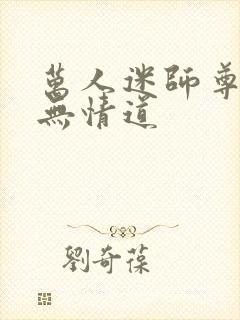 萬人迷師尊
無情道
劉奇葆